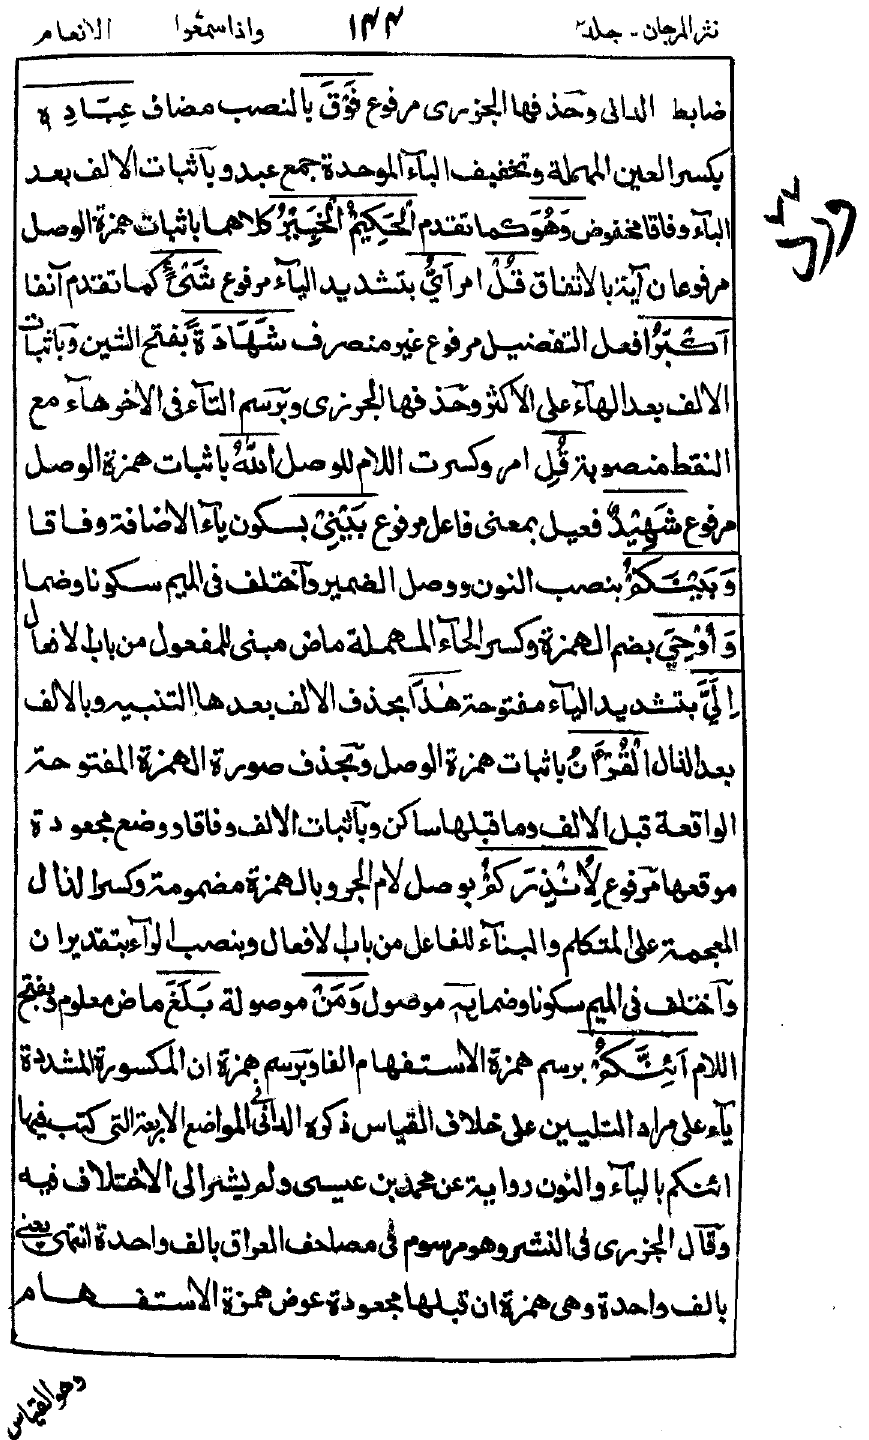 نثر المرجان - جلد٢ ١٤٤ واذا سمعوا الانعام
ضابط الدانى وحذفها الجزرى مرفوع فَوْقَ بالنصب مضاف عِبَادِهٖ
بكسر العين المهملة وتخفيف الباء الموحدة جمع عبد وباثبات الالف بعد
الباء وفاقا مخفوض وَهُوَ كما تقدم الْحَكِيْمُ الْخَبِيْرُ كلاهما باثبات همزة الوصل
مرفوعان آية بالاتفاق قُلْ امر اَىُّ بتشديد الياء مرفوع شَىْءٍ كما تقدم آنفا
اَكْبَرُ افعل التفضيل مرفوع غير منصرف شَهَادَةً بفتح الشين وباثبات
الالف بعد الهاء على الاكثر وحذفها الجزرى وبرسم التاء فى الاخر هاء مع
النقط منصوبة قُلِ امر وكسرت اللام للوصل اللّٰهُ باثبات همزة الوصل
مرفوع شَهِيْدٌ فعيل بمعنى فاعل مرفوع بَيْنِىْ بسكون ياء الاضافة وفاقا
وَبَيْنَكُمْ بنصب النون ووصل الضمير واختلف فى الميم سكونا وضما
وَاُوْحِىَ بضم الهمزة وكسر الحاء المهملة ماض مبنى للمفعول من باب الافعال
اِلَىَّ بتشديد الياء مفتوحة هٰذَا بحذف الالف بعد ها التنبيه وبالالف
بعد الذال الْقُرْءَانُ باثبات همزة الوصل وبحذف صورة الهمزة المفتوحة
الواقعة قبل الالف وما قبلها ساكن وباثبات الالف وفاقا ووضع مجعودة
موقعها مرفوع لِاُنْذِرَكُمْ بوصل لام الجر وبالهمزة مضمومة وكسر الذال
المعجمة على المتكلم والبناء للفاعل من باب الافعال وبنصب الراء بتقدير ان
واختلف فى الميم سكونا وضما به موصول وَمَنْ موصولة بَلَغَ ماض معلوم بفتح
اللام اَئِنَّكُمْ برسم همزة الاستفهام الفا وبرسم همزة ان المكسورة المشددة
ياء على مراد التليين على خلاف القياس ذكره الدانى فى المواضع الاربعة التى كتب فيها
ائنكم بالياء والنون رواية عن محمد بن عيسى ولم يشر الى الاختلاف فيه
وقال الجزرى فى النشر وهو مرسوم فى مصاحف العراق بالف واحدة انتهى يعنى
بالف واحدة وهى همزة ان قبلها مجعودة عوض همزة الاستفهام
وهو القياس